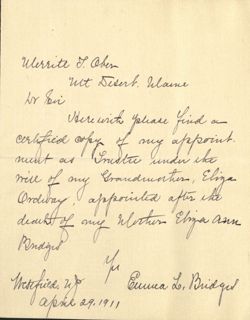 Merritt T. Ober
Mt Desert. Maine
Dr Sir
Herewith please find a
certified copy of my appoint-
ment as Trustee under the
will of my Grandmother, Eliza
Ordway, appointed after the
death of my Mother Eliza Ann
Bridges
Yrs
Emma L. Bridges
Westfield NJ
April 29. 1911